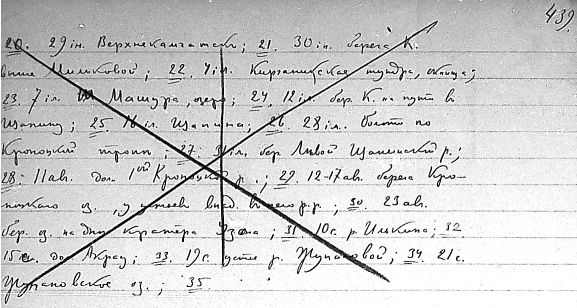 439.
20. 29 iн. Верхнекамчатск; 21. 30 iн. берега К.
выше Мильковой; 22. 7 iл. Кирганикская тундра,
23. 7 iл. Машура, озеро; 24. 12 iл. бер. К. на пути в
Щапину; 25. 16 iл. Щапина; 26. 28 iл. по
Кроноцкой тропе; 27. 31 iл. бер. Левой Щапинской р.;
28. 11 ав. дол. 1ой Кроноцкой р.; 29. 12-17 ав. берега Кро-
ноцкого оз. у устьев впад. в него р.р.; 30. 23 ав.
бер. оз. на дну кратера Узона; 31. 10 с. р. ; 32
15 с. до ; 33. 19 с. устье р. Жупановой; 34. 21 с.
Жупановское оз.; 35